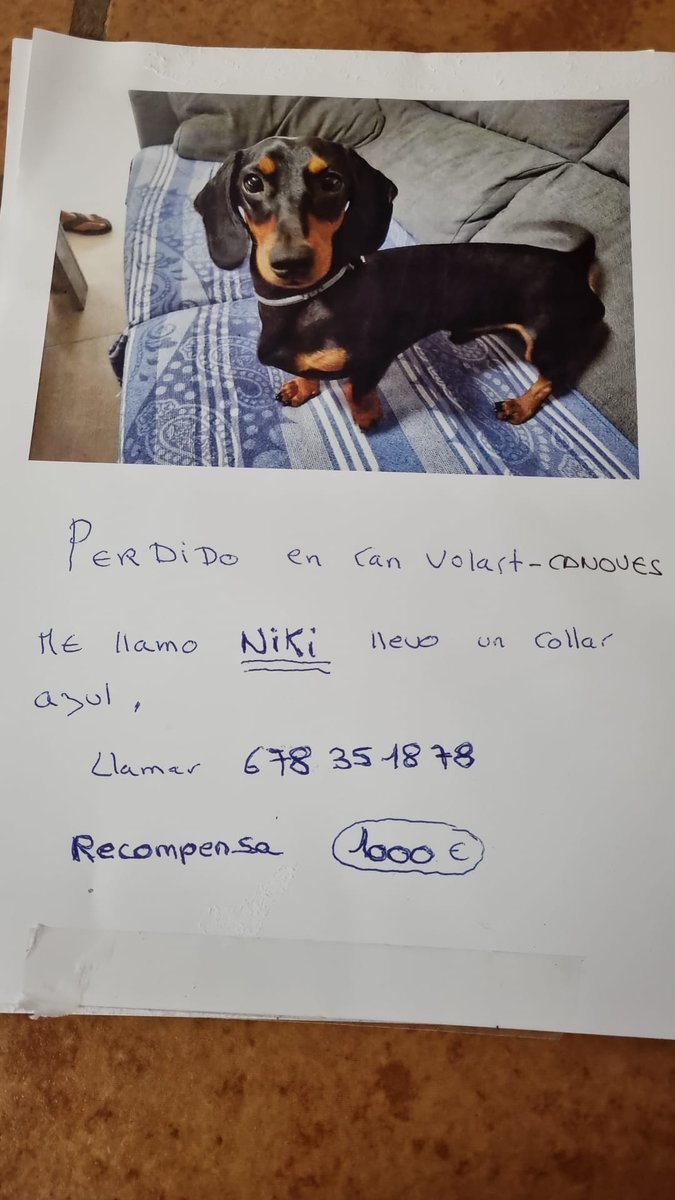 PERDIDO en can Volart-CANOVES
ME llamo NiKi llevo un collar
azul,
Llamar 678 35 18 78
Recompensa 1000 €